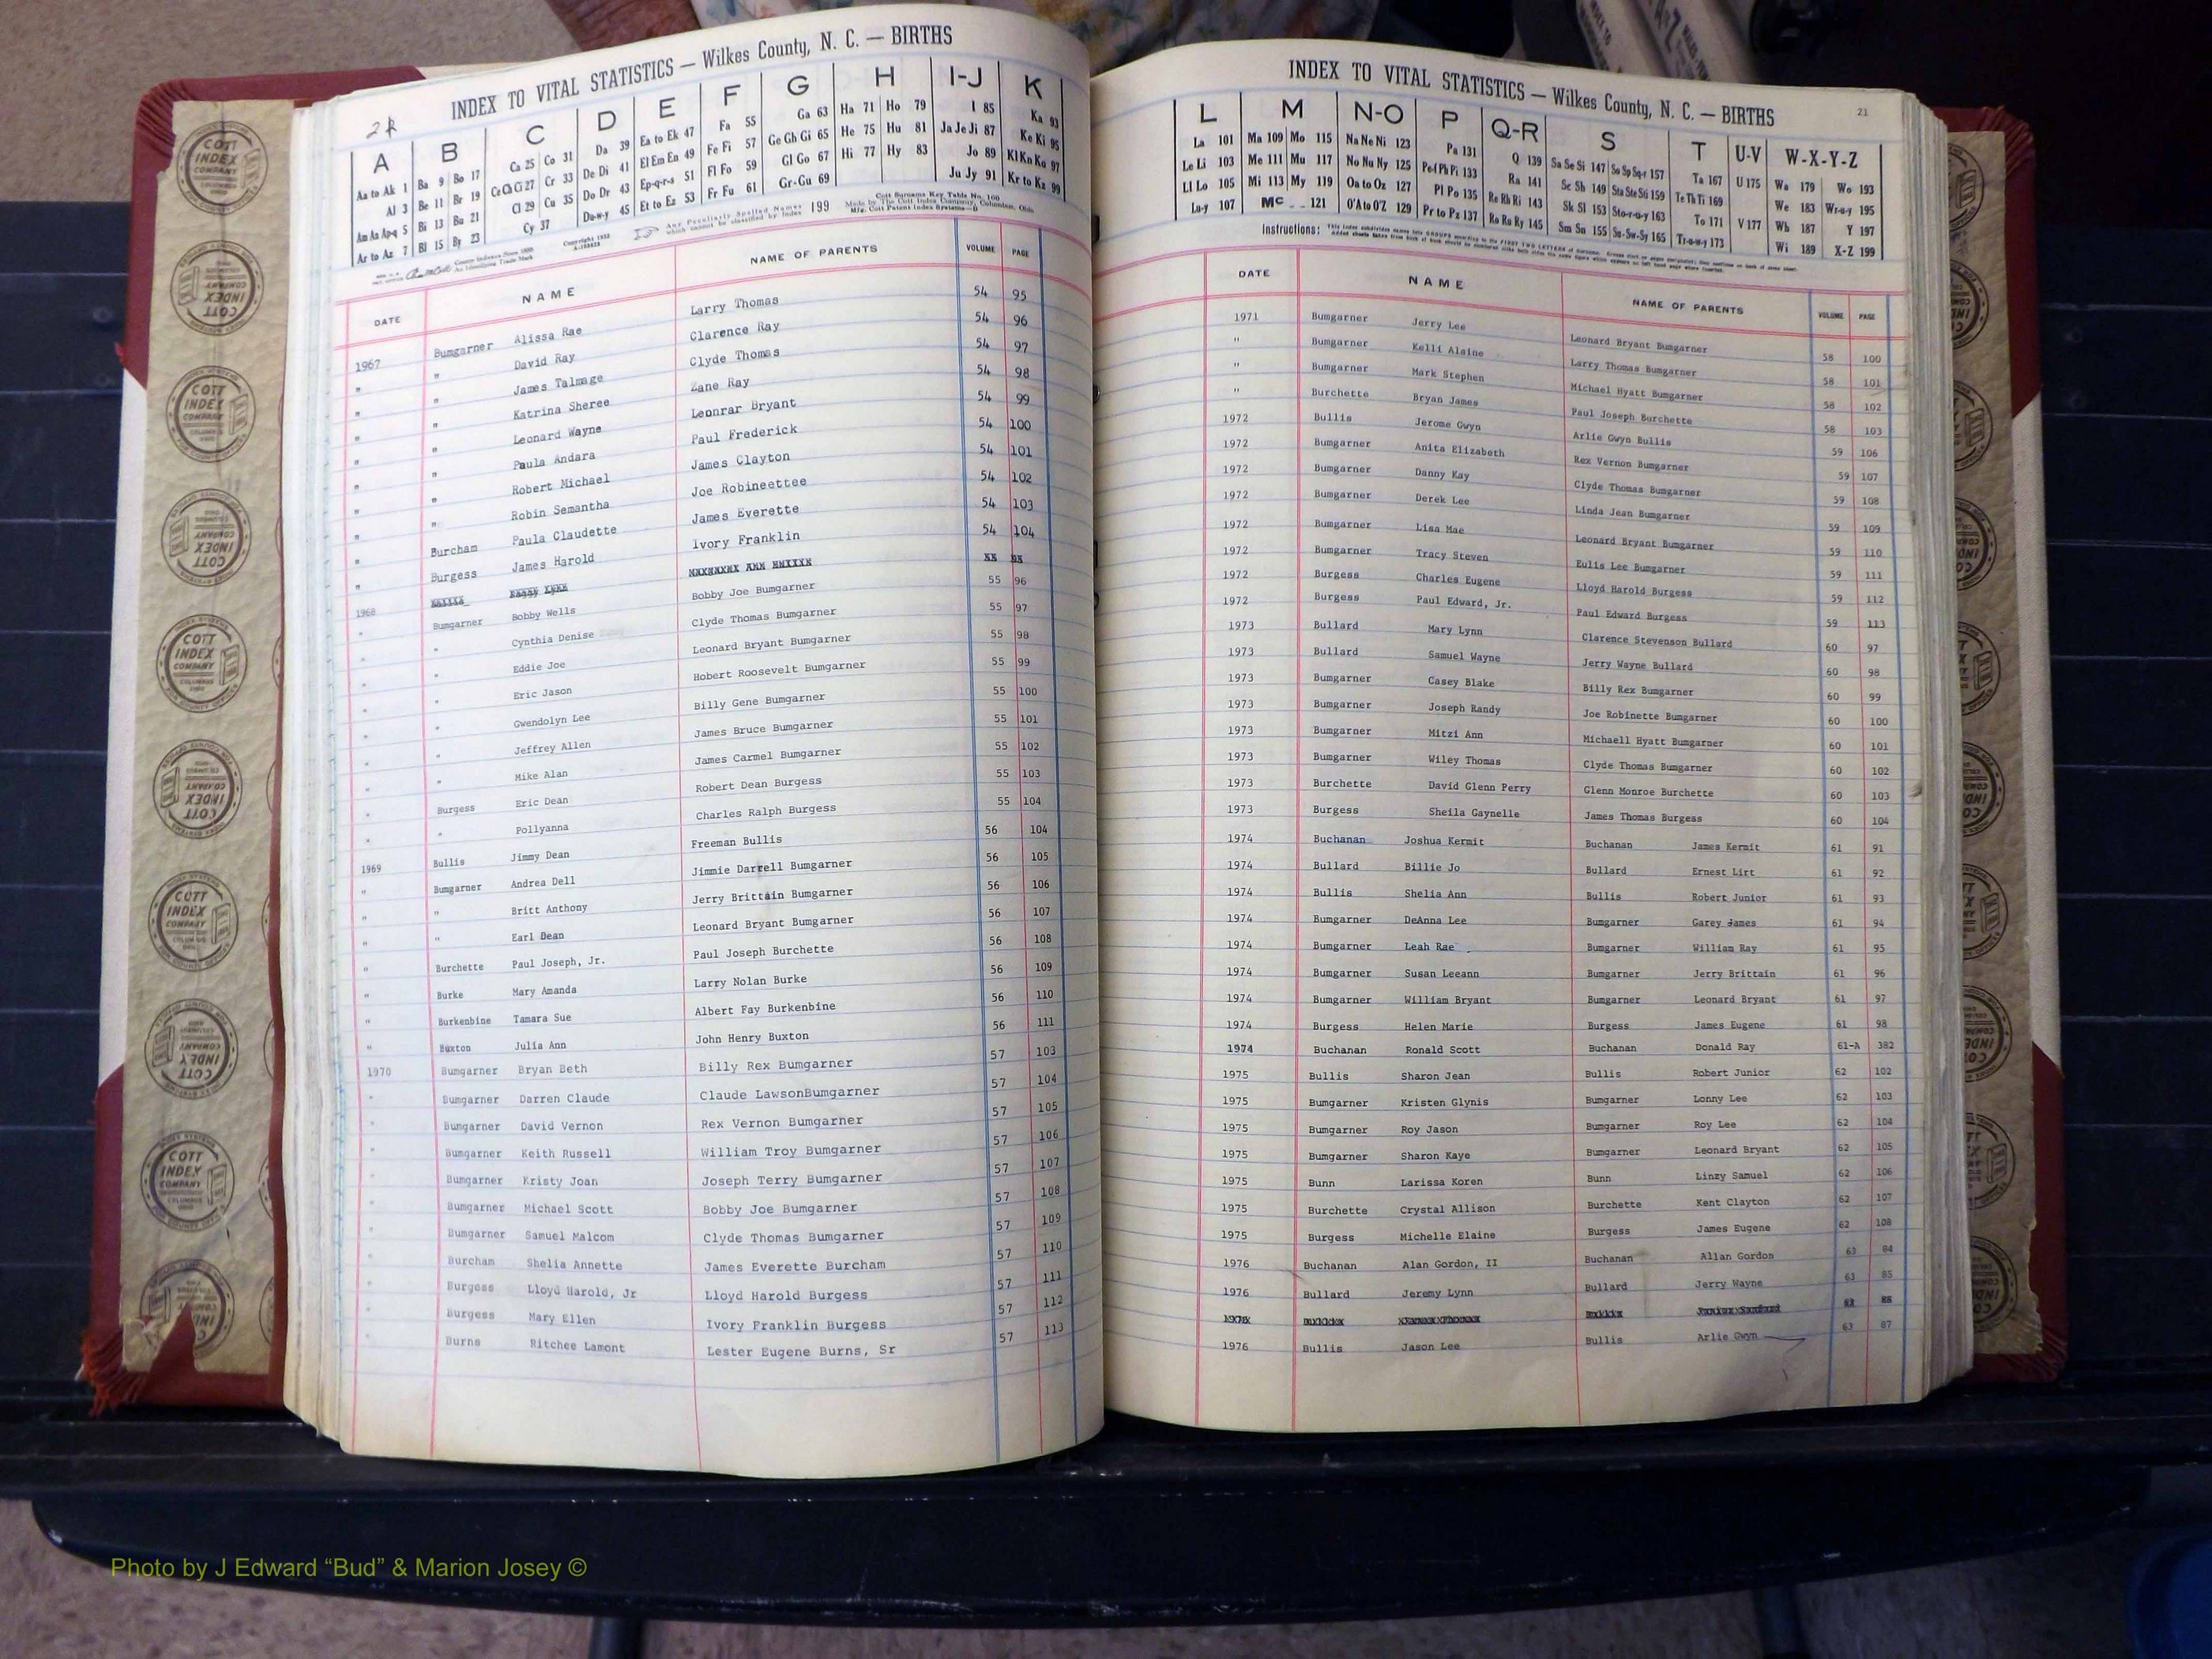 INDEX TO VITAL STATISTICS — Wilkes County, N. C. — BIRTHS
A B C D E F G H I-J K
Aa to Ak 1 Ba 9 Bo 17 Ca 25 Co 31 Da 39 Ea to Ek 47 Fa 55 Ga 63 Ha 71 Ho 79 I 85 Ka 93
Al 3 Be 11 Br 19 Ce Ch Ci 27 Cr 33 De Di 41 El Em En 49 Fe Fi 57 Ge Gh Gi 65 He 75 Hu 81 Ja Je Ji 87 Ke Ki 95
Am An Ap-q 5 Bi 13 Bu 21 Cl 29 Cu 35 Do Dr 43 Ep-q-r-s 51 Fl Fo 59 Gl Go 67 Hi 77 Hy 83 Jo 89 Kl Kn Ko 97
Ar to Az 7 Bl 15 By 23 Cy 37 Du-w-y 45 Et to Ez 53 Fr Fu 61 Gr-Gu 69 Ju Jy 91 Kr to Kz 99
Any Peculiarly Spelled Names which cannot be classified by Index 199
Cott Surname Key Table No. 100
Made by The Cott Index Company, Columbus, Ohio
DATE NAME NAME OF PARENTS VOLUME PAGE
1967 Bumgarner Alissa Rae Larry Thomas 54 95
" " David Ray Clarence Ray 54 96
" " James Talmage Clyde Thomas 54 97
" " Katrina Sheree Zane Ray 54 98
" " Leonard Wayne Leonrar Bryant 54 99
" " Paula Andara Paul Frederick 54 100
" " Robert Michael James Clayton 54 101
" " Robin Semantha Joe Robineettee 54 102
" Burcham Paula Claudette James Everette 54 103
" Burgess James Harold Ivory Franklin 54 104
1968 Bumgarner Bobby Wells Bobby Joe Bumgarner 55 96
" " Cynthia Denise Clyde Thomas Bumgarner 55 97
" " Eddie Joe Leonard Bryant Bumgarner 55 98
" " Eric Jason Hobert Roosevelt Bumgarner 55 99
" " Gwendolyn Lee Billy Gene Bumgarner 55 100
" " Jeffrey Allen James Bruce Bumgarner 55 101
" " Mike Alan James Carmel Bumgarner 55 102
" Burgess Eric Dean Robert Dean Burgess 55 103
" " Pollyanna Charles Ralph Burgess 55 104
1969 Bullis Jimmy Dean Freeman Bullis 56 104
" Bumgarner Andrea Dell Jimmie Darrell Bumgarner 56 105
" " Britt Anthony Jerry Brittain Bumgarner 56 106
" " Earl Dean Leonard Bryant Bumgarner 56 107
" Burchette Paul Joseph, Jr. Paul Joseph Burchette 56 108
" Burke Mary Amanda Larry Nolan Burke 56 109
" Burkenbine Tamara Sue Albert Fay Burkenbine 56 110
" Buxton Julia Ann John Henry Buxton 56 111
1970 Bumgarner Bryan Beth Billy Rex Bumgarner 57 103
" Bumgarner Darren Claude Claude LawsonBumgarner 57 104
" Bumgarner David Vernon Rex Vernon Bumgarner 57 105
" Bumgarner Keith Russell William Troy Bumgarner 57 106
" Bumgarner Kristy Joan Joseph Terry Bumgarner 57 107
" Bumgarner Michael Scott Bobby Joe Bumgarner 57 108
" Bumgarner Samuel Malcom Clyde Thomas Bumgarner 57 109
" Burcham Shelia Annette James Everette Burcham 57 110
" Burgess Lloyd Harold, Jr Lloyd Harold Burgess 57 111
" Burgess Mary Ellen Ivory Franklin Burgess 57 112
" Burns Ritchee Lamont Lester Eugene Burns, Sr 57 113
INDEX TO VITAL STATISTICS — Wilkes County, N. C. — BIRTHS 21
L M N-O P Q-R S T U-V W-X-Y-Z
La 101 Ma 109 Mo 115 Na Ne Ni 123 Pa 131 Q 139 Sa Se Si 147 So Sp Sq-r 157 Ta 167 U 175 Wa 179 Wo 193
Le Li 103 Me 111 Mu 117 No Nu Ny 125 Pe-f Ph Pi 133 Ra 141 Sc Sh 149 Sta Ste Sti 159 Te Th Ti 169 We 183 Wr-u-y 195
Ll Lo 105 Mi 113 My 119 Oa to Oz 127 Pl Po 135 Re Rh Ri 143 Sk Sl 153 Sto-r-u-y 163 To 171 V 177 Wh 187 Y 197
Lu-y 107 Mc 121 O'A to O'Z 129 Pr to Pz 137 Ro Ru Ry 145 Sm Sn 155 Su-Sw-Sy 165 Tr-u-w-y 173 Wi 189 X-Z 199
Instructions:
DATE NAME NAME OF PARENTS VOLUME PAGE
1971 Bumgarner Jerry Lee Leonard Bryant Bumgarner 58 100
" Bumgarner Kelli Alaine Larry Thomas Bumgarner 58 101
" Bumgarner Mark Stephen Michael Hyatt Bumgarner 58 102
" Burchette Bryan James Paul Joseph Burchette 58 103
1972 Bullis Jerome Gwyn Arlie Gwyn Bullis 59 106
1972 Bumgarner Anita Elizabeth Rex Vernon Bumgarner 59 107
1972 Bumgarner Danny Kay Clyde Thomas Bumgarner 59 108
1972 Bumgarner Derek Lee Linda Jean Bumgarner 59 109
1972 Bumgarner Lisa Mae Leonard Bryant Bumgarner 59 110
1972 Bumgarner Tracy Steven Eulis Lee Bumgarner 59 111
1972 Burgess Charles Eugene Lloyd Harold Burgess 59 112
1972 Burgess Paul Edward, Jr. Paul Edward Burgess 59 113
1973 Bullard Mary Lynn Clarence Stevenson Bullard 60 97
1973 Bullard Samuel Wayne Jerry Wayne Bullard 60 98
1973 Bumgarner Casey Blake Billy Rex Bumgarner 60 99
1973 Bumgarner Joseph Randy Joe Robinette Bumgarner 60 100
1973 Bumgarner Mitzi Ann Michaell Hyatt Bumgarner 60 101
1973 Bumgarner Wiley Thomas Clyde Thomas Bumgarner 60 102
1973 Burchette David Glenn Perry Glenn Monroe Burchette 60 103
1973 Burgess Sheila Gaynelle James Thomas Burgess 60 104
1974 Buchanan Joshua Kermit Buchanan James Kermit 61 91
1974 Bullard Billie Jo Bullard Ernest Lirt 61 92
1974 Bullis Shelia Ann Bullis Robert Junior 61 93
1974 Bumgarner DeAnna Lee Bumgarner Garey James 61 94
1974 Bumgarner Leah Rae Bumgarner William Ray 61 95
1974 Bumgarner Susan Leeann Bumgarner Jerry Brittain 61 96
1974 Bumgarner William Bryant Bumgarner Leonard Bryant 61 97
1974 Burgess Helen Marie Burgess James Eugene 61 98
1974 Buchanan Ronald Scott Buchanan Donald Ray 61-A 382
1975 Bullis Sharon Jean Bullis Robert Junior 62 102
1975 Bumgarner Kristen Glynis Bumgarner Lonny Lee 62 103
1975 Bumgarner Roy Jason Bumgarner Roy Lee 62 104
1975 Bumgarner Sharon Kaye Bumgarner Leonard Bryant 62 105
1975 Bunn Larissa Koren Bunn Linzy Samuel 62 106
1975 Burchette Crystal Allison Burchette Kent Clayton 62 107
1975 Burgess Michelle Elaine Burgess James Eugene 62 108
1976 Buchanan Alan Gordon, II Buchanan Allan Gordon 63 84
1976 Bullard Jeremy Lynn Bullard Jerry Wayne 63 85
1976 Bullis Jason Lee Bullis Arlie Gwyn 63 87
Photo by J Edward “Bud” & Marion Josey ©